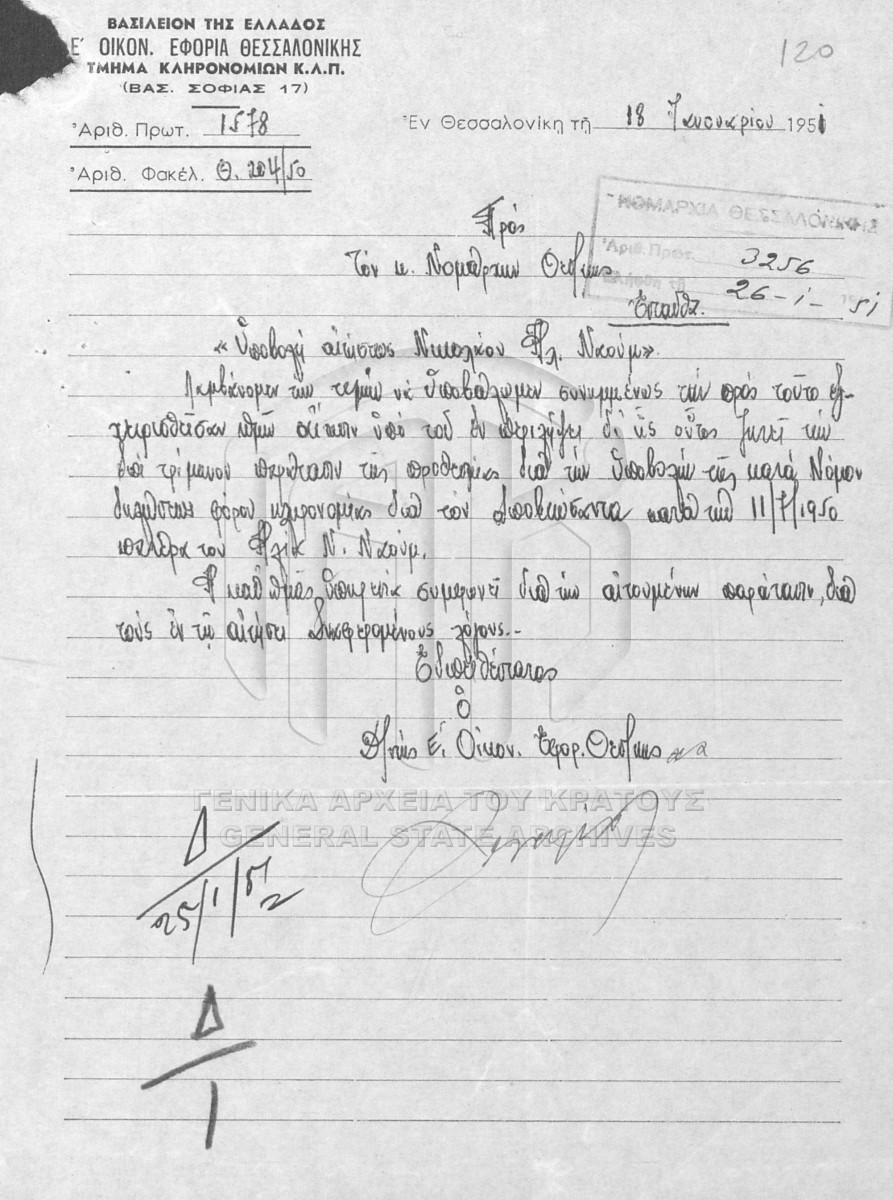 ΒΑΣΙΛΕΙΟΝ ΤΗΣ ΕΛΛΑΔΟΣ
Ε΄ ΟΙΚΟΝ. ΕΦΟΡΙΑ ΘΕΣΣΑΛΟΝΙΚΗΣ
ΤΜΗΜΑ ΚΛΗΡΟΝΟΜΙΩΝ Κ.Λ.Π.
(ΒΑΣ. ΣΟΦΙΑΣ 17)
120
Ἀριθ. Πρωτ. 1578
Ἐν Θεσσαλονίκῃ τῇ 18 Ἰανουαρίου 1951
Ἀριθ. Φακέλ. Θ. 204/50
ΝΟΜΑΡΧΙΑ ΘΕΣΣΑΛΟΝΙΚΗΣ
Ἀριθ. Πρωτ. 3256
Ἐλήφθη τῇ 26-1-1951
Πρός
Τόν κ. Νομάρχην Θεσ/κης
Ἐνταῦθα.
«Ὑποβολή αἰτήσεως Νικολάου Ἠλ. Ναούμ».
Λαμβάνομεν τήν τιμήν νά ὑποβάλωμεν συνημμένως τήν πρός τοῦτο ἐγ-
χειρισθεῖσαν ἡμῖν αἴτησιν ὑπό τοῦ ἐν περιλήψει δι' ἧς οὗτος ζητεῖ τήν
διά τρίμηνον παράτασιν τῆς προθεσμίας διά τήν ὑποβολήν τῆς κατά Νόμον
δηλώσεως φόρου κληρονομίας διά τόν ἀποβιώσαντα κατά τήν 11/7/1950
πατέρα του Ἠλία Ν. Ναούμ.
Ἡ καθ' ἡμᾶς ὑπηρεσία συμφωνεῖ διά τήν αἰτουμένην παράτασιν, διά
τούς ἐν τῇ αἰτήσει ἀναφερομένους λόγους.-
Εὐπειθέστατος
Ὁ
Δ/ντής Ε΄. Οἰκον. Ἐφορ. Θεσ/κης
ΓΕΝΙΚΑ ΑΡΧΕΙΑ ΤΟΥ ΚΡΑΤΟΥΣ
GENERAL STATE ARCHIVES
Δ
25/1/51
Δ
1